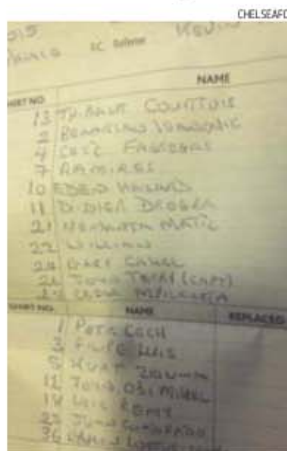 CHELSEAFC
R.C. Referee KEVIN
NAME
SHIRT NO
13 THIBAUT COURTOIS
2 BRANISLAV IVANOVIC
4 CESC FABREGAS
7 RAMIRES
10 EDEN HAZARD
11 DIDIER DROGBA
21 NEMANJA MATIC
22 WILLIAN
24 GARY CAHILL
26 JOHN TERRY (CAPT)
28
SHIRT NO. NAME REPLACED
1 PETR CECH
3 FILIPE LUIS
5 KURT ZOUMA
12 JOHN OBI MIKEL
18 LOIC REMY
23 JUAN CUADRADO
36